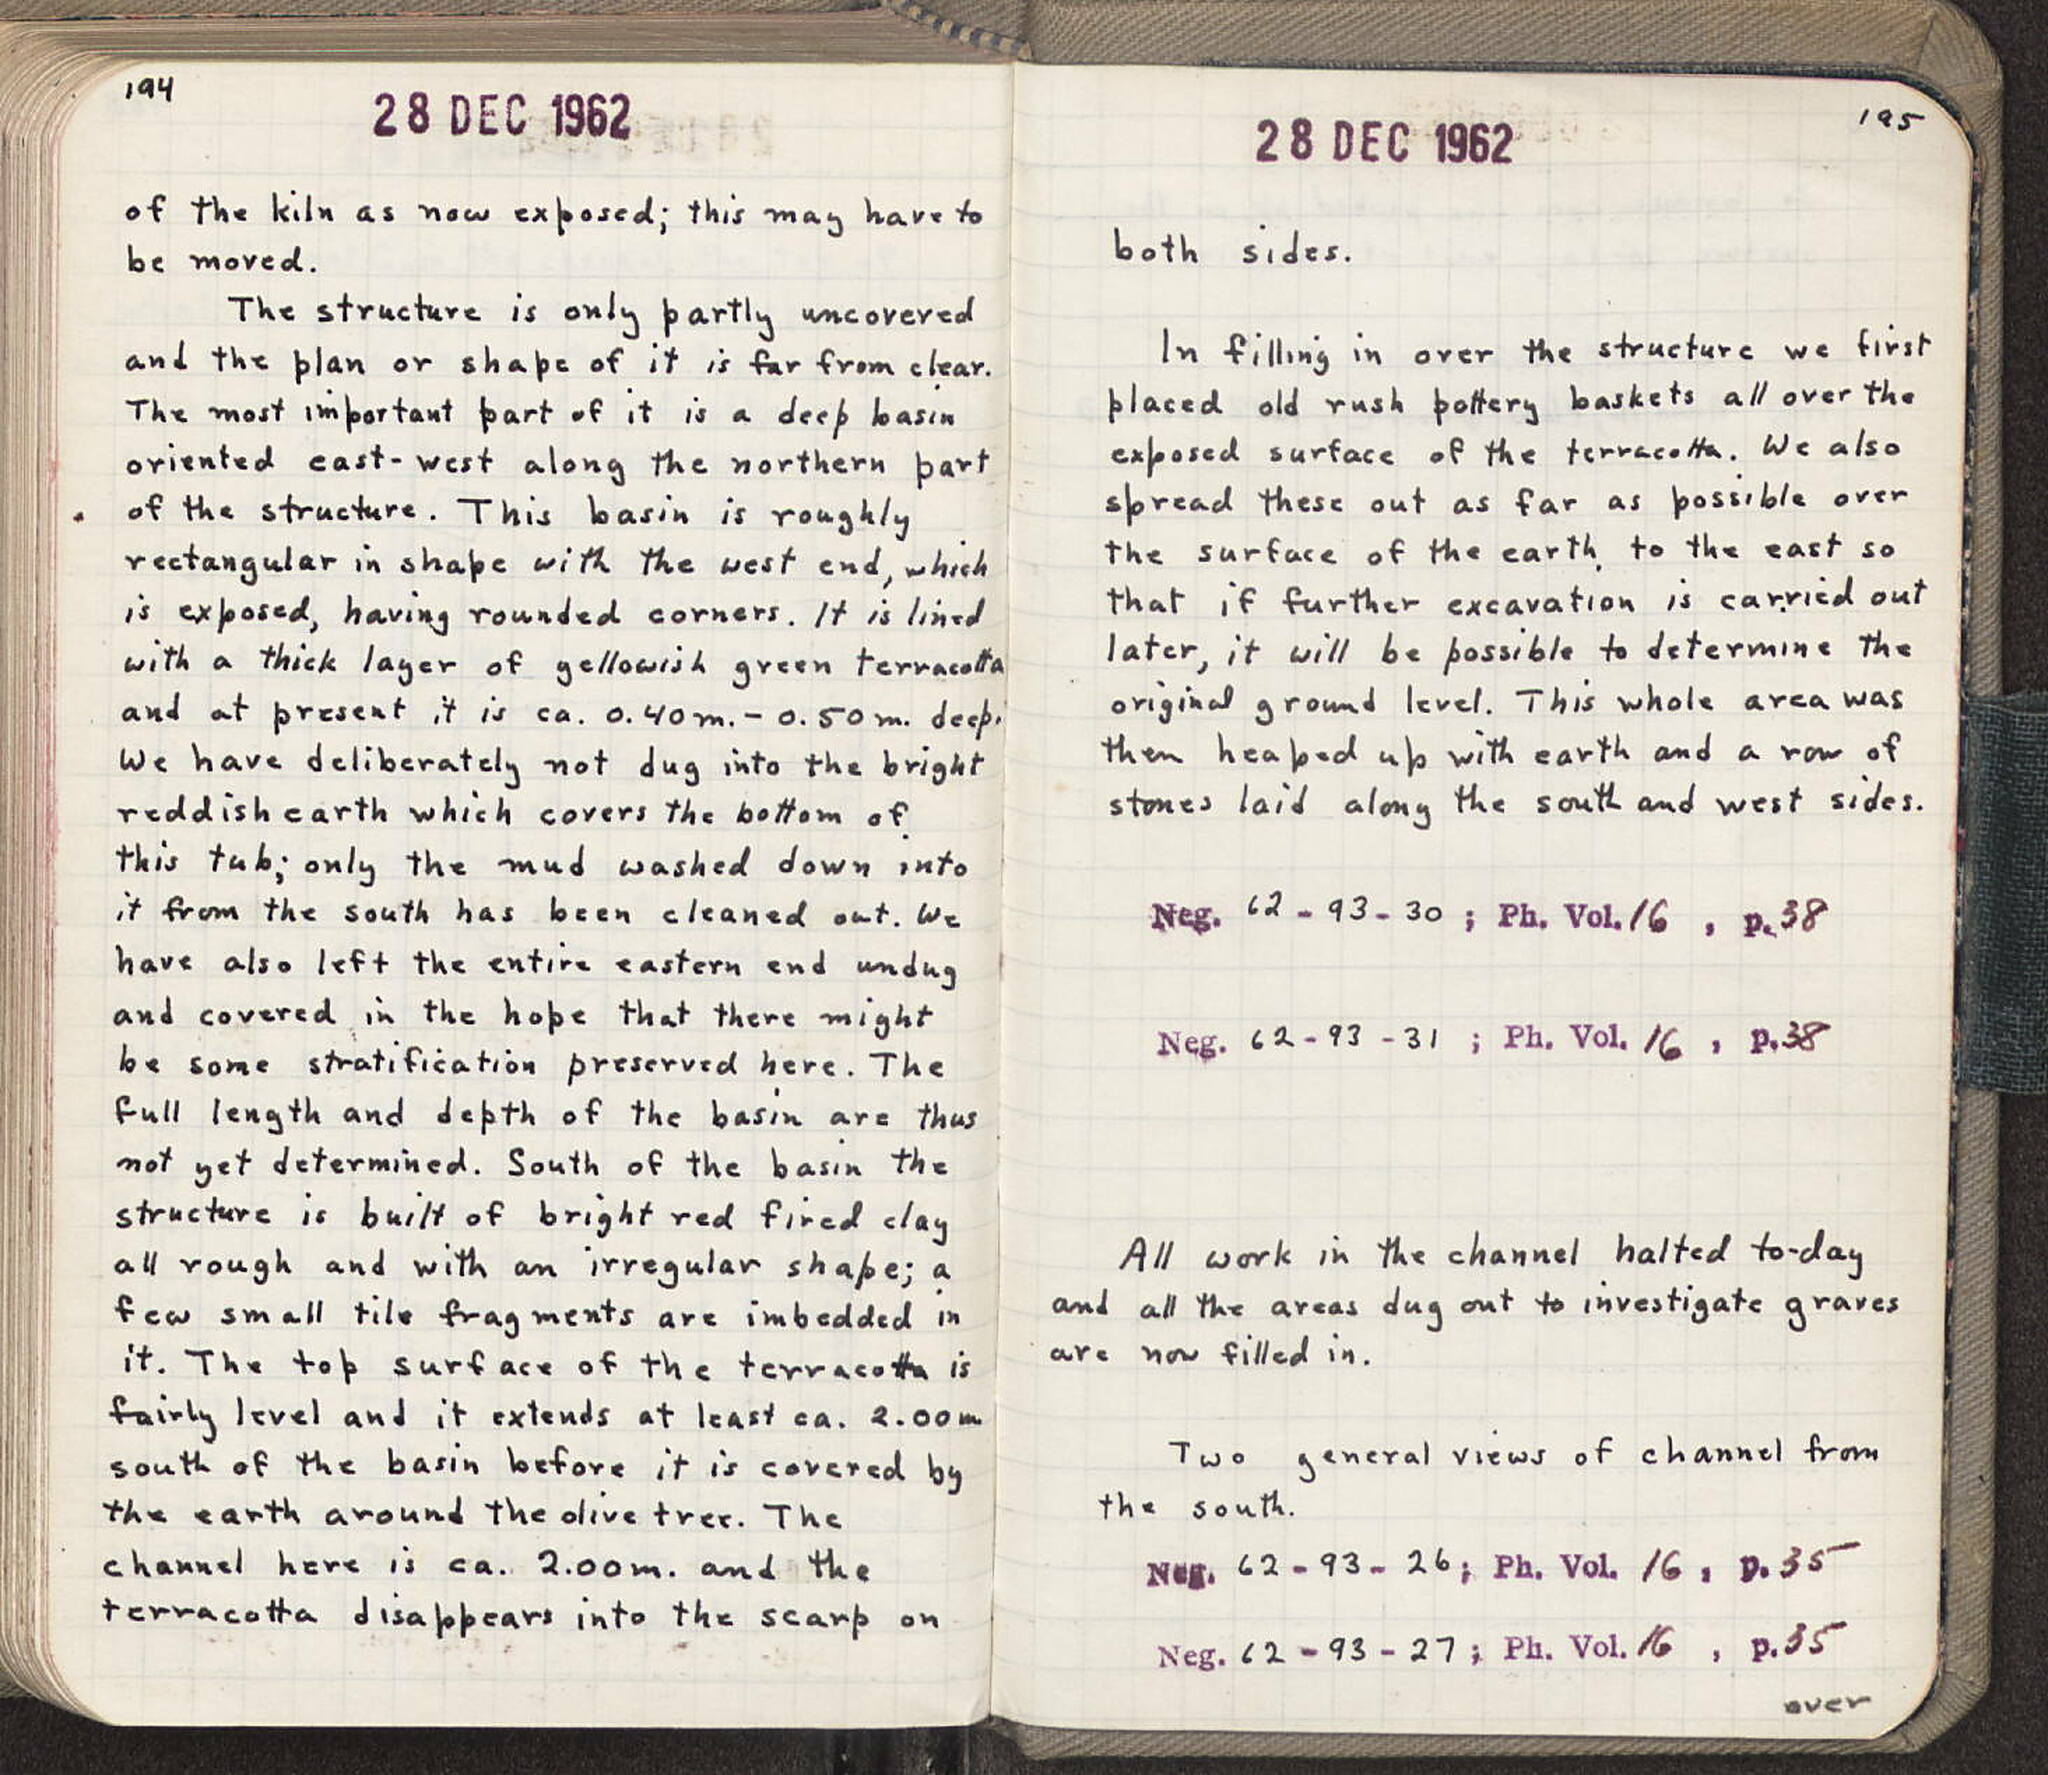 194
28 DEC 1962
of the kiln as now exposed; this may have to
be moved.
The structure is only partly uncovered
and the plan or shape of it is far from clear.
The most important part of it is a deep basin
oriented east-west along the northern part
of the structure. This basin is roughly
rectangular in shape with the west end, which
is exposed, having rounded corners. It is lined
with a thick layer of yellowish green terracotta
and at present it is ca. 0.40m. - 0.50m. deep.
We have deliberately not dug into the bright
reddish earth which covers the bottom of
this tub; only the mud washed down into
it from the south has been cleaned out. We
have also left the entire eastern end undug
and covered in the hope that there might
be some stratification preserved here. The
full length and depth of the basin are thus
not yet determined. South of the basin the
structure is built of bright red fired clay
all rough and with an irregular shape; a
few small tile fragments are imbedded in
it. The top surface of the terracotta is
fairly level and it extends at least ca. 2.00m
south of the basin before it is covered by
the earth around the olive tree. The
channel here is ca. 2.00m. and the
terracotta disappears into the scarp on
195
28 DEC 1962
both sides.
In filling in over the structure we first
placed old rush pottery baskets all over the
exposed surface of the terracotta. We also
spread these out as far as possible over
the surface of the earth to the east so
that if further excavation is carried out
later, it will be possible to determine the
original ground level. This whole area was
then heaped up with earth and a row of
stones laid along the south and west sides.
Neg. 62-93-30; Ph. Vol. 16, p. 38
Neg. 62-93-31; Ph. Vol. 16, p. 38
All work in the channel halted to-day
and all the areas dug out to investigate graves
are now filled in.
Two general views of channel from
the south.
Neg. 62-93-26; Ph. Vol. 16, p. 35
Neg. 62-93-27; Ph. Vol. 16, p. 35
over